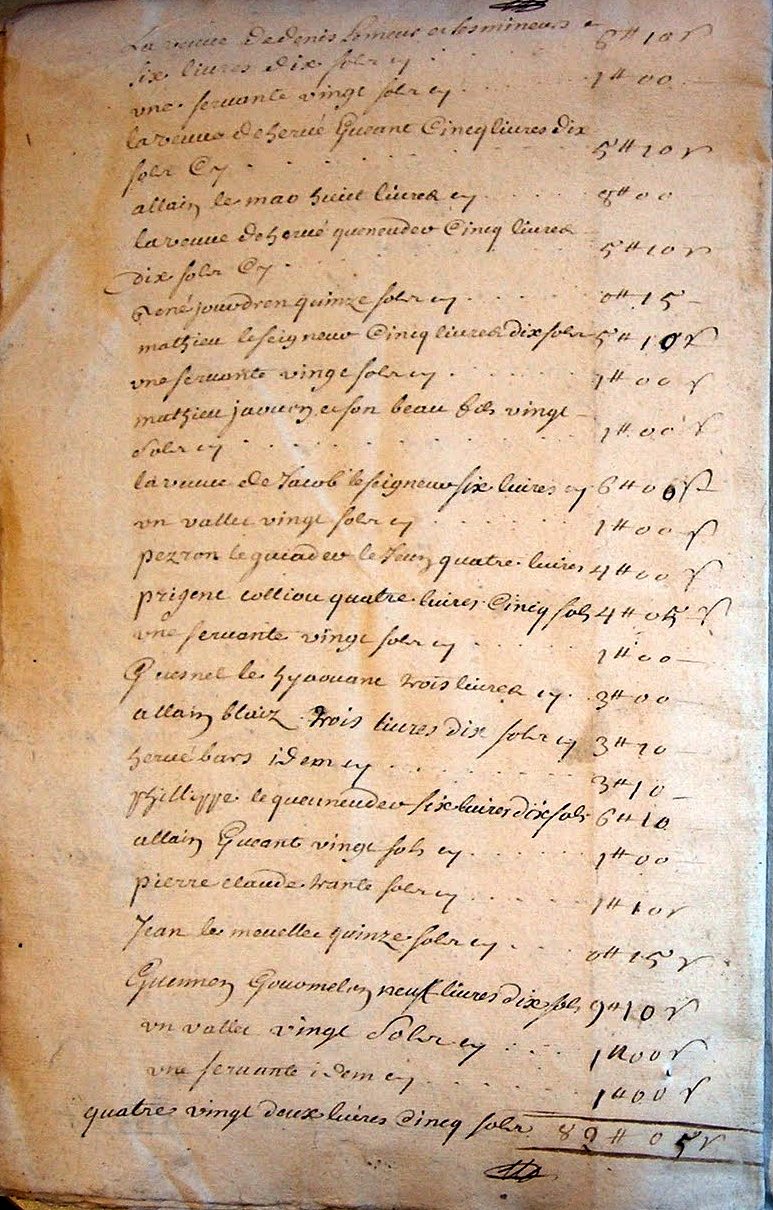 La veuve de denis Lemeur et les mineurs
six livres dix sols cy . . . . 6 ₶ 10 s
une servante vingt sols cy . . . . 1 ₶ 00
la veuve de hervé Gueant Cincq livres dix
sols Cy . . . . 5 ₶ 10 s
allain le mao huict livres cy . . . . 8 ₶ 00
la veuve de hervé queneudev Cincq livres
dix sols Cy . . . . 5 ₶ 10 s
René jouvdren quinze sols cy . . . . 0 ₶ 15
mathieu le seigneur Cincq livres dix sols 5 ₶ 10 s
une servante vingt sols cy . . . . 1 ₶ 00 s
mathieu jaouen et son beau fils vingt
sols cy . . . . 1 ₶ 00 s
la veuve de Jacob le seigneur six livres cy 6 ₶ 00 s
un vallet vingt sols cy . . . . 1 ₶ 00 s
pezron le guiadev le Jeun quatre livres 4 ₶ 00 s
prigent colliou quatre livres Cincq sols 4 ₶ 05 s
une servante vingt sols cy . . . . 1 ₶ 00
Guesnel le hyaouanc trois livres cy . 3 ₶ 00
allain blaiz trois livres dix sols cy 3 ₶ 10
hervé bars idem cy . . . . 3 ₶ 10
phillippe le queuneudev six livres dix sols 6 ₶ 10
allain Gueant vingt sols cy . . . . 1 ₶ 00
pierre claude trante sols cy . . . . 1 ₶ 10 s
Jean le menellec quinze sols cy . . . . 0 ₶ 15 s
Guennen Gouomelen neuf livres dix sols 9 ₶ 10 s
un vallet vingt sols cy . . . . 1 ₶ 00 s
une servante idem cy . . . . 1 ₶ 00 s
quatre vingt deux livres cincq sols 82 ₶ 05 s